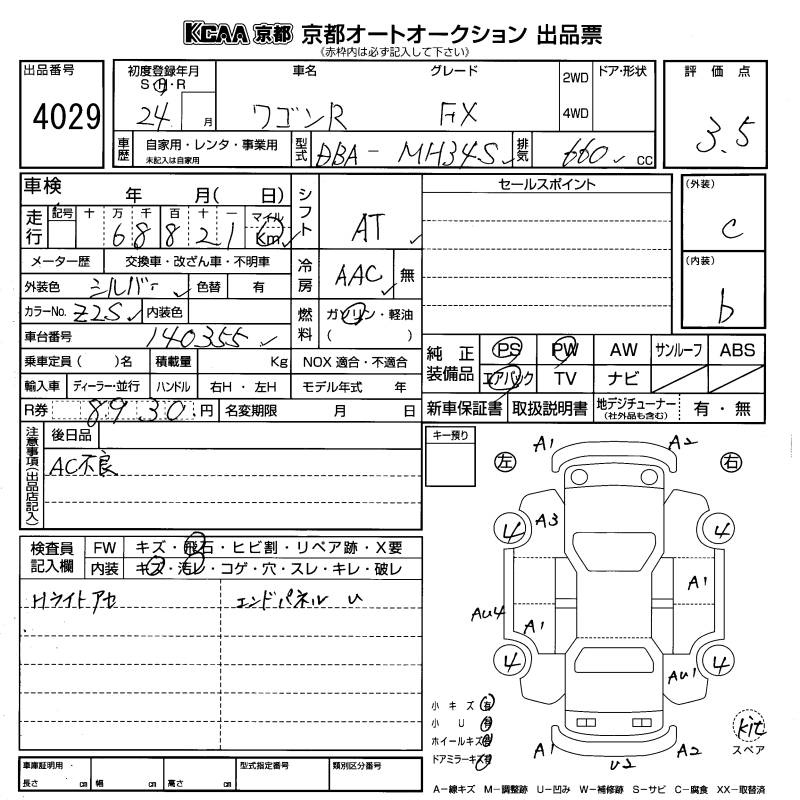 KCAA 京都 京都オートオークション 出品票
《赤枠内は必ず記入して下さい》
出品番号
4029
初度登録年月
S・H・R
24 月
車名
ワゴンR
グレード
FX
2WD
4WD
ドア・形状
評価点
3.5
車歴
自家用・レンタ・事業用
未記入は自家用
型式
DBA-MH34S
排気
660 CC
車検 年 月( 日)
走行
記号 十 万 千 百 十 一 マイル
68821 Km
シフト
AT
メーター歴 交換車・改ざん車・不明車
冷房
AAC 無
外装色 シルバー 色替 有
カラーNo. Z2S 内装色
燃料
ガソリン・軽油
( )
車台番号 140355
乗車定員( )名 積載量 Kg NOX 適合・不適合
輸入車 ディーラー・並行 ハンドル 右H・左H モデル年式 年
R券 8930 円 名変期限 月 日
セールスポイント
(外装)
C
(内装)
b
純正装備品
PS PW AW サンルーフ ABS
エアバック TV ナビ
新車保証書 取扱説明書 地デジチューナー
(社外品も含む) 有・無
注意事項(出品店記入)
後日品
AC不良
キー預り
検査員記入欄
FW キズ・飛石・ヒビ割・リペア跡・X要
内装 キズ・汚レ・コゲ・穴・スレ・キレ・破レ
Hライトアセ
エンドパネル U
左
右
A1
A2
A3
4
4
A1
Au4
A1
4
4
Au1
A1
U2
A2
小キズ 有
小U 有
ホイールキズ 有
ドアミラーキズ 有
kit
スペア
車庫証明用・
長さ cm 幅 cm 高さ cm
型式指定番号
類別区分番号
A−線キズ M−調整跡 U−凹み W−補修跡 S−サビ C−腐食 XX−取替済